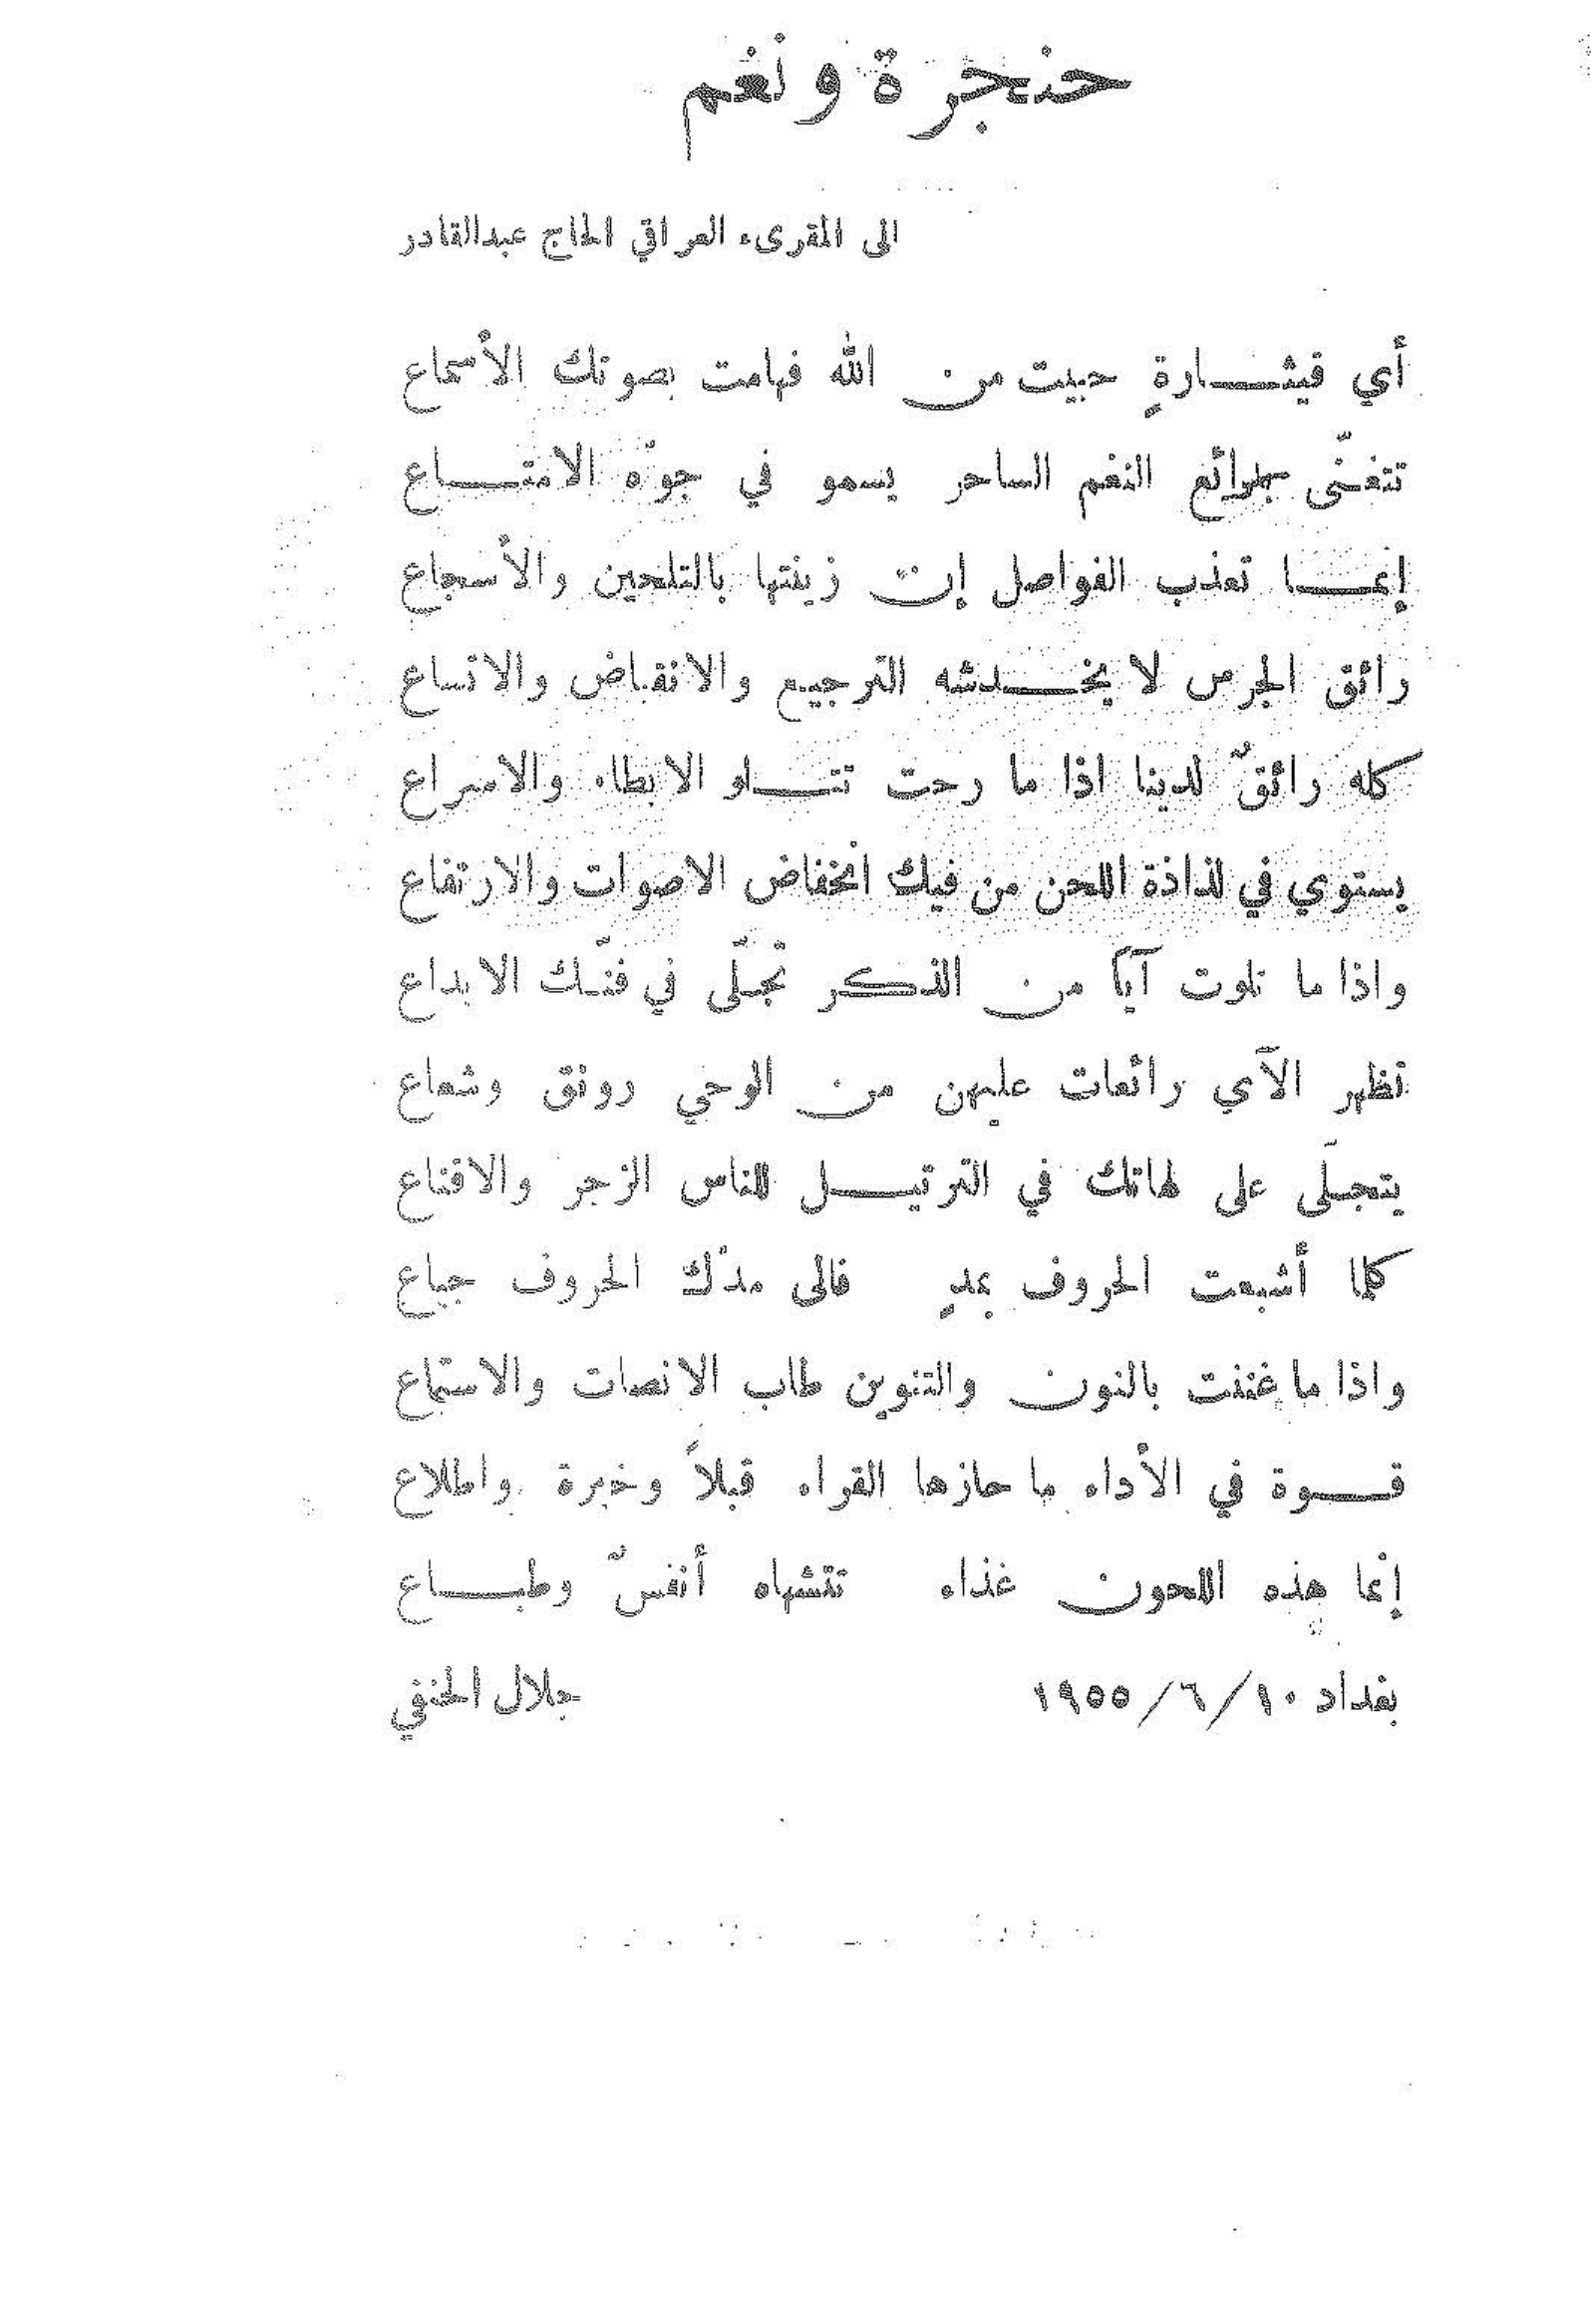 حنجرة ونغم
الى المقرىء العراقي الحاج عبدالقادر
أي قيثارةٍ حبيت من الله فهامت بصوتك الأسماع
تتغنّى بروائع النغم الساحر يسمو في جوّه الامتاع
إنما تعذب الفواصل إن زينتها بالتلحين والأسجاع
رائق الجرس لا يخدشه الترجيع والانقباض والاتساع
كله رائقٌ لدينا اذا ما رحت تتلو الابطاء والاسراع
يستوي في لذاذة اللحن من فيك انخفاض الاصوات والارتفاع
واذا ما تلوت آياً من الذكر تجلّى في فنّك الابداع
تظهر الآي رائعات عليهن من الوحي رونق وشعاع
يتجلّى على لهاتك في الترتيل للناس الزجر والاقناع
كلما أشبعت الحروف بمدٍ فالى مدّك الحروف جياع
واذا ما غننت بالنون والتنوين طاب الانصات والاستماع
قوة في الأداء ما حازها القراء قبلاً وخبرة واطلاع
إنما هذه اللحون غذاء تتشهاه أنفسٌ وطباع
بغداد ١٠/٦/١٩٥٥
جلال الحنفي